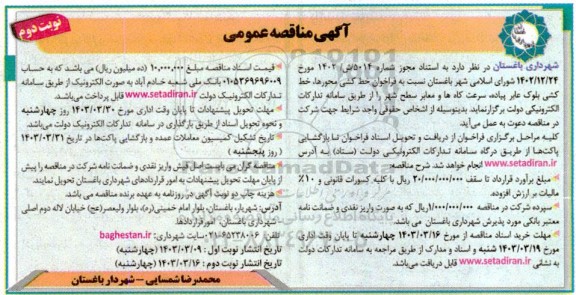 آگهی مناقصه عمومی
نوبت دوم
شهرداری باغستان در نظر دارد به استناد مجوز شماره ۵۰۱۴/ش/ ۱۴۰۲ مورخ
۱۴۰۲/۱۲/۲۴ شورای اسلامی شهر باغستان نسبت به فراخوان خط کشی محورها، خط
کشی بلوک عابر پیاده، سرعت کاه ها و معابر سطح شهر را از طریق سامانه تدارکات
الکترونیکی دولت برگزار نماید. بدینوسیله از اشخاص حقوقی واجد شرایط جهت شرکت
در مناقصه دعوت به عمل می‌آید.
کلیه مراحل برگزاری فراخوان از دریافت و تحویل اسناد فراخوان تا بازگشایی
پاکت‌ها از طریق درگاه سامانه تدارکات الکترونیکی دولت (ستاد) به آدرس
www.setadiran.ir انجام خواهد شد. شرح مناقصه:
مبلغ برآورد قرارداد تا سقف ۲۰/۰۰۰/۰۰۰/۰۰۰ ریال با کلیه کسورات قانونی و ۱۰٪
مالیات بر ارزش افزوده.
سپرده شرکت در مناقصه ۱/۰۰۰/۰۰۰/۰۰۰ ریال که به صورت واریز نقدی و ضمانت نامه
معتبر بانکی مورد پذیرش شهرداری باغستان می باشد.
مهلت خرید اسناد مناقصه از مورخ ۱۴۰۳/۰۳/۱۶ چهارشنبه تا پایان وقت اداری
مورخ ۱۴۰۳/۰۳/۱۹ شنبه و اسناد و مدارک از طریق مراجعه به سامانه تدارکات دولت
به نشانی www.setadiran.ir قابل دریافت می‌باشد.
قیمت اسناد مناقصه مبلغ ۱۰,۰۰۰,۰۰۰ (ده میلیون ریال) می باشد که به حساب
۰۱۰۵۳۶۹۶۹۶۰۰۹ بانک ملی شعبه خادم آباد به صورت الکترونیک از طریق سامانه
تدارکات الکترونیک دولت www.setadiran.ir قابل پرداخت می‌باشد.
مهلت تحویل پیشنهادات تا پایان وقت اداری مورخ ۱۴۰۳/۰۳/۳۰ روز چهارشنبه
و نحوه تحویل اسناد از طریق بارگذاری در سامانه تدارکات الکترونیک دولت می‌باشد.
تاریخ تشکیل کمیسیون معاملات عمده و بازگشایی پاکت‌ها در تاریخ ۱۴۰۳/۰۳/۳۱
( روز پنجشنبه )
مناقصه گران می بایست اصل فیش واریز نقدی و ضمانت نامه شرکت در مناقصه را پیش
از پایان مهلت تحویل پیشنهادات به امور قراردادهای شهرداری باغستان تحویل نمایند.
هزینه چاپ دو نوبت آگهی در روزنامه به عهده برنده مناقصه می باشد.
آدرس: شهریار، باغستان، بلوار امام خمینی(ره)، بلوار ولیعصر(عج) خیابان لاله دوم اصلی
شهرداری باغستان امور قراردادها.
تلفن: ۰۲۱۶۵۲۳۸۰۸۶ سایت شهرداری: baghestan.ir
تاریخ انتشار نوبت اول: ۱۴۰۳/۰۳/۰۹ (چهارشنبه)
تاریخ انتشار نوبت دوم : ۱۴۰۳/۰۳/۱۶ (چهارشنبه)
محمدرضا شمسایی – شهردار باغستان